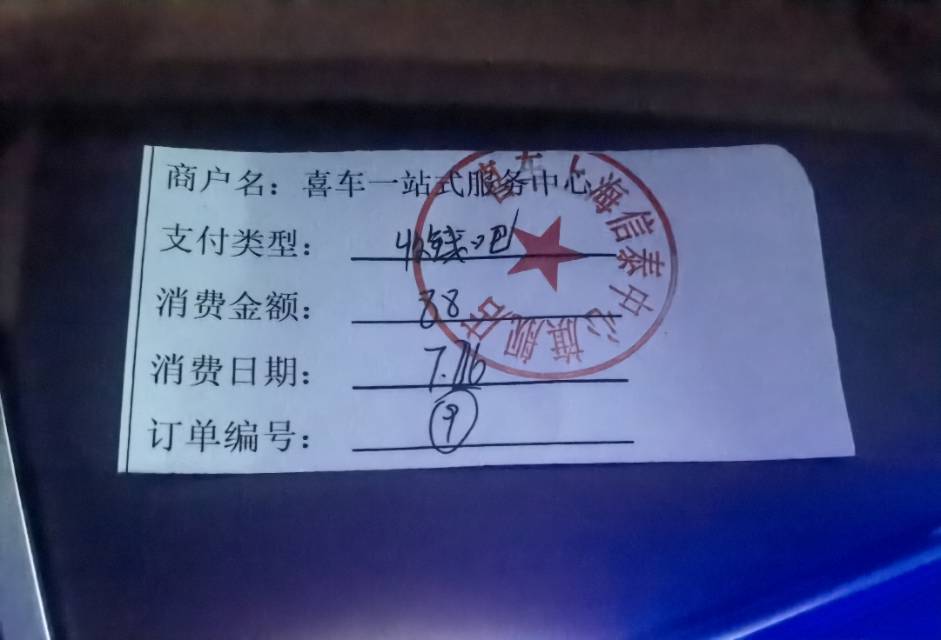 商户名：喜车一站式服务中心
支付类型：收钱吧
消费金额：38
消费日期：7.16
订单编号：⑨
喜车上海信泰中心旗舰店